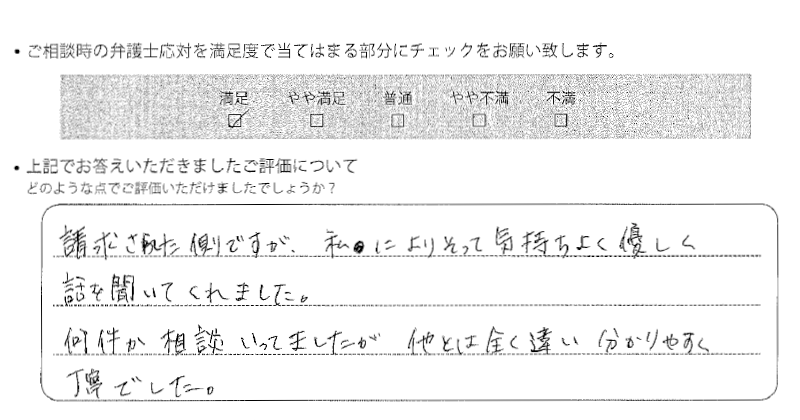 • ご相談時の弁護士応対を満足度で当てはまる部分にチェックをお願い致します。
満足 やや満足 普通 やや不満 不満
☑ ☐ ☐ ☐ ☐
• 上記でお答えいただきましたご評価について
どのような点でご評価いただけましたでしょうか？
請求された側ですが、私によりそって気持ちよく優しく
話を聞いてくれました。
何件か相談いってましたが 他とは全く違い 分かりやすく
丁寧でした。